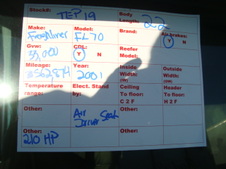 Stock#: TEP 19 Body Length: 22
Make: Model: Brand: Air brakes:
Freightliner FL 70 Y N
Gvw: CDL: Reefer Model:
33,000 Y N
Mileage: Year: Inside Width: Outside Width:
2001
Temperature range: Elect. Stand by: Ceiling To floor: Header To floor:
C 2 F H 2 F
Other: Air Driver Seat Other: Other:
Other:
210 HP